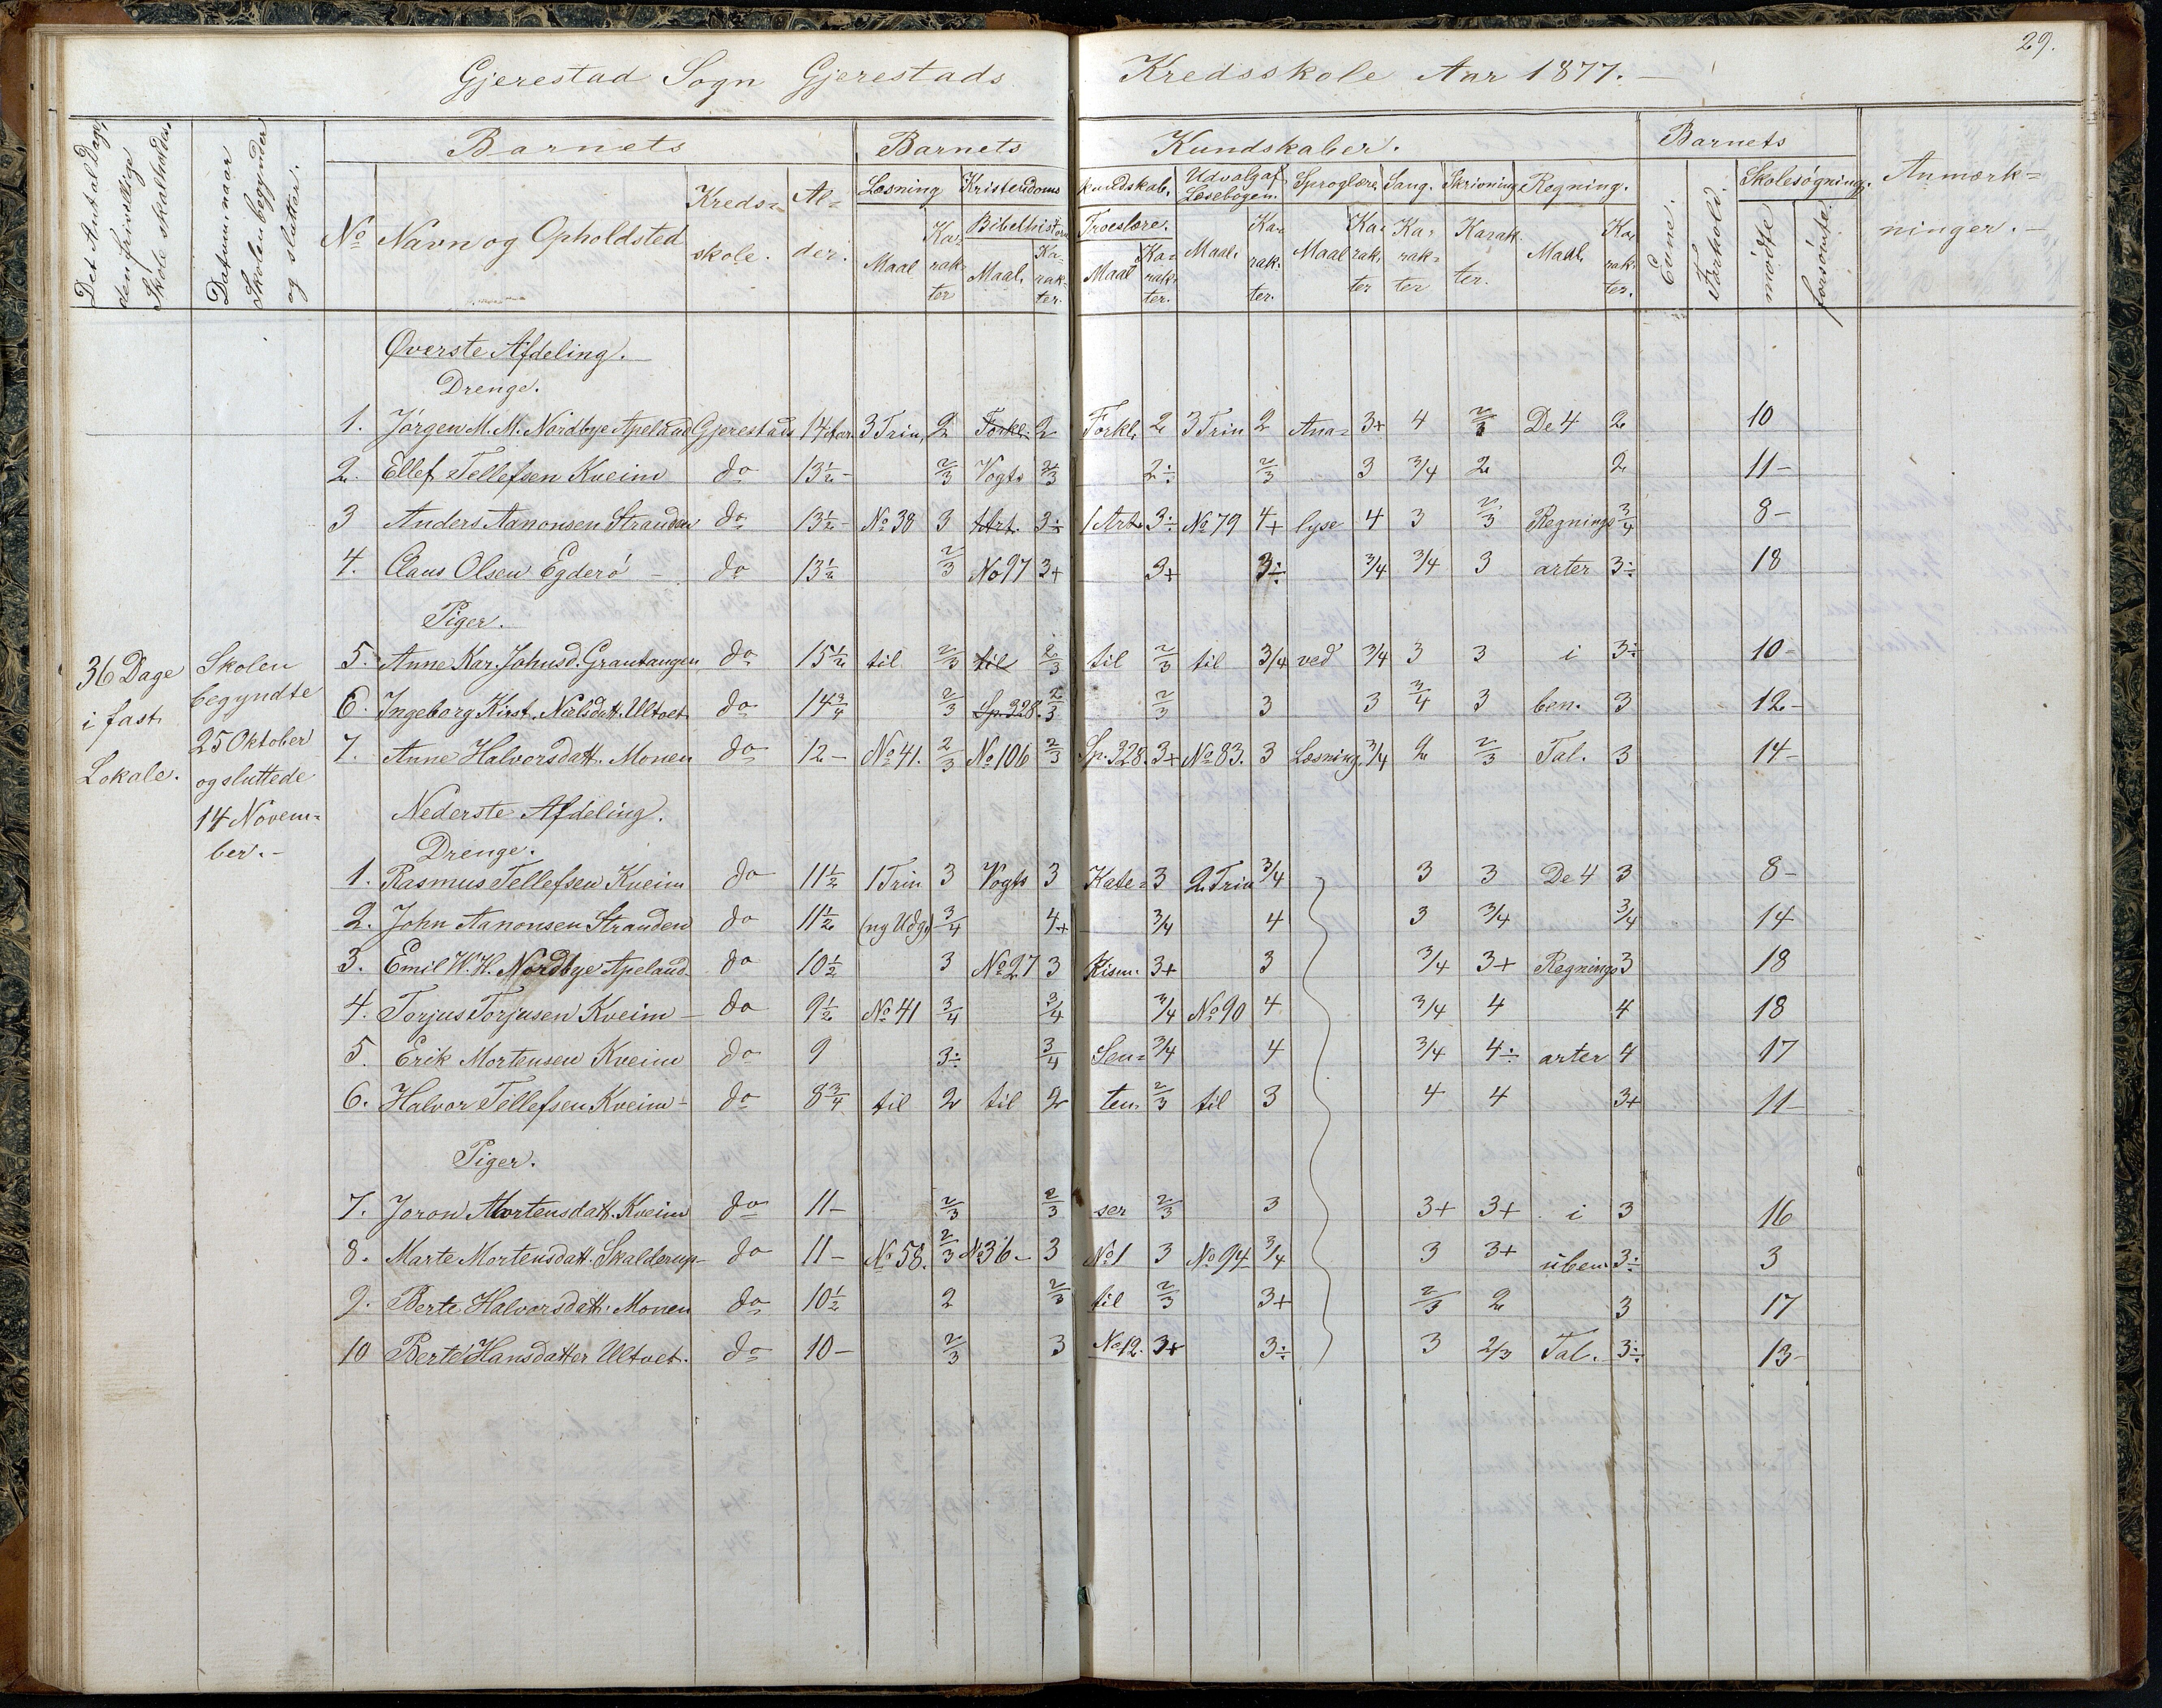 29.
Gjerestad Sogn Gjerestads Kredsskole Aar 1877.
Det Antal Dage, den frivillige Skole skal holdes.
Datum, naar Skolen begynder og slutter.
Barnets
Barnets Kundskaber.
Barnets
Anmærkninger.
No Navn og Opholdsted Kredsskole. Alder.
Læsning Kristendoms kundskab. Udvalg af Læsebogen. Sproglære. Sang. Skrivning Regning.
Evne. Forhold. Skolesøgning.
Bibelhistorie Troeslære.
Maal Karakter Maal. Karakter. Maal Karakter. Maal. Karakter. Maal Karakter Karakter Karakter. Maal. Karakter. mødte forsømte.
36 Dage
i fast
Lokale.
Skolen
begyndte
25 Oktober
og sluttede
14 Novem=
ber. -
Øverste Afdeling.
Drenge.
1. Jørgen M. M. Nordbye Apeland Gjerestads 14 Aar 3 Trin, 2 Forkl. 2 Forkl. 2 3 Trin 2 Ana= 3+ 4 2/3 De 4 2 10
2. Ellef Tellefsen Kveim do 13½ - 2/3 Vogts 2/3 2÷ 2/3 3 3/4 2 2 11 -
3 Anders Aanonsen Stranden do 13½ - No 38 3 1 Art. 3÷ 1 Art. 3÷ No 79 4+ lyse 4 3 2/3 Regnings 3/4 8 -
4. Claus Olsen Egderö - do 13½ 2/3 No 97 3+ 3+ 3÷ 3/4 3/4 3 arter 3÷ 18
Piger.
5. Anne Kar. Johnsd. Grautangen do 15½ til 2/3 til 2/3 til 2/3 til 3/4 ved 3/4 3 3 i 3÷ 10 -
6. Ingeborg Kirst. Nielsdatt. Ultvet do 14¾ 2/3 Sp. 328. 2/3 2/3 3 3 3/4 3 ben. 3 12 -
7. Anne Halvorsdatt. Monen do 12 - No 41. 2/3 No 106 2/3 Sp. 328. 3+ No 83. 3 Læsning. 3/4 2 2/3 Tal. 3 14 -
Nederste Afdeling.
Drenge.
1. Rasmus Tellefsen Kveim do 11½ 1 Trin 3 Vogts 3 Kate= 3 2 Trin 3/4 3 3 De 4 3 8 -
2. John Aanonsen Stranden do 11½ (ny Udg.) 3/4 4+ 3/4 4 3 3/4 3/4 14
3. Emil W. H. Nordbye Apeland do 10½ 3 No 27 3 kism. 3+ 3 3/4 3+ Regnings 3 18
4. Torjus Torjusen Kveim - do 9½ No 41 3/4 3/4 3/4 No 90 4 3/4 4 4 18
5. Erik Mortensen Kveim do 9 3÷ 3/4 Sen= 3/4 4 3/4 4÷ arter 4 17
6. Halvor Tellefsen Kveim - do 8¾ til 2 til 2 ten. 2/3 til 3 4 4 3+ 11 -
Piger.
7. Joron Mortensdatt. Kveim do 11 - 2/3 2/3 ser 2/3 3 3+ 3+ i 3 16
8. Marte Mortensdatt. Skalderup do 11 - No 58. 2/3 No 36 - 3 No 1 3 No 94 3/4 3 3+ uben. 3÷ 3
9. Berte Halvorsdatt. Monen do 10½ 2 2/3 til 2/3 3+ 2/3 2 3 17
10 Berte Hansdatter Ultvet. do 10 - 2/3 3 No 12. 3+ 3÷ 3 2/3 Tal. 3÷ 13 -